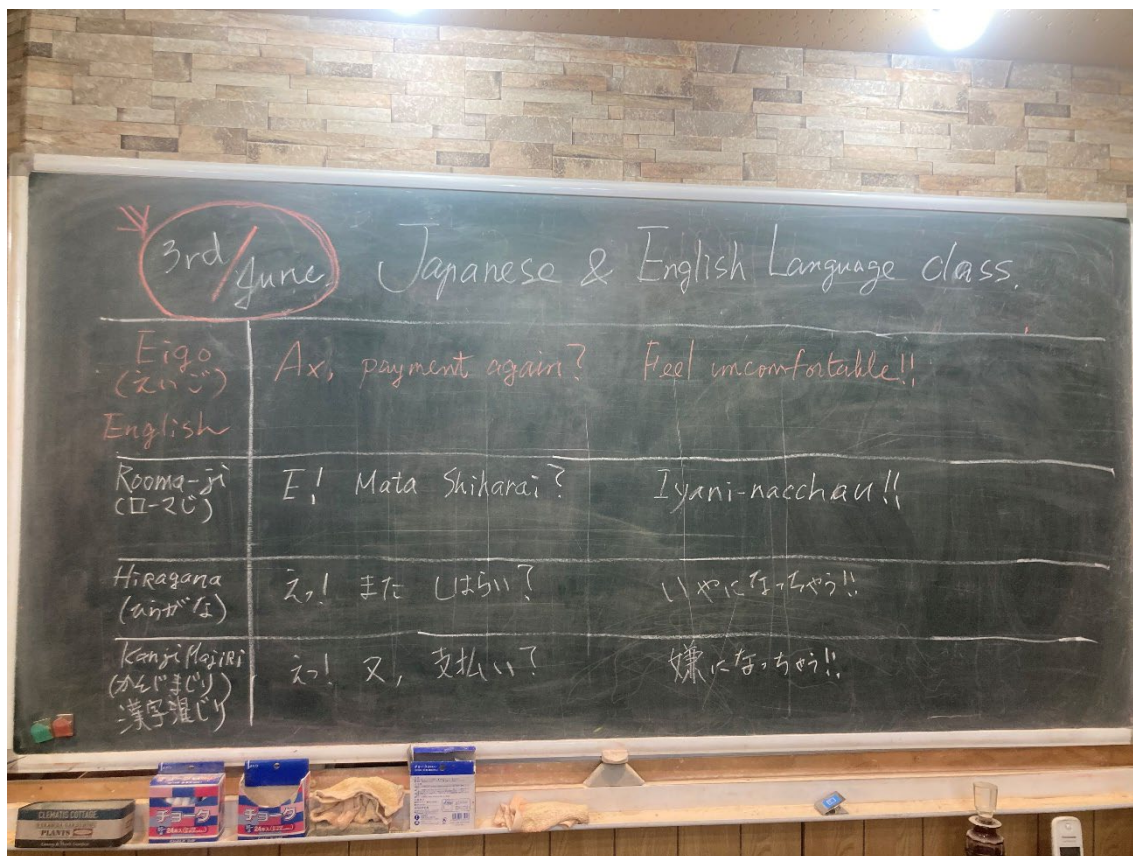 3rd/June. Japanese & English Language class.
Eigo
(えいご)
English
Ax, payment again? Feel uncomfortable!!
Rooma-ji
(ローマじ)
E! Mata Shiharai? Iyani-nacchau!!
Hiragana
(ひらがな)
えっ! また しはらい? いやになっちゃう!!
Kanji Majiri
(かんじまじり)
漢字混じり
えっ! 又, 支払い? 嫌になっちゃう!!
CLEMATIC COTTAGE
PLANTS
チョーク
チョーク